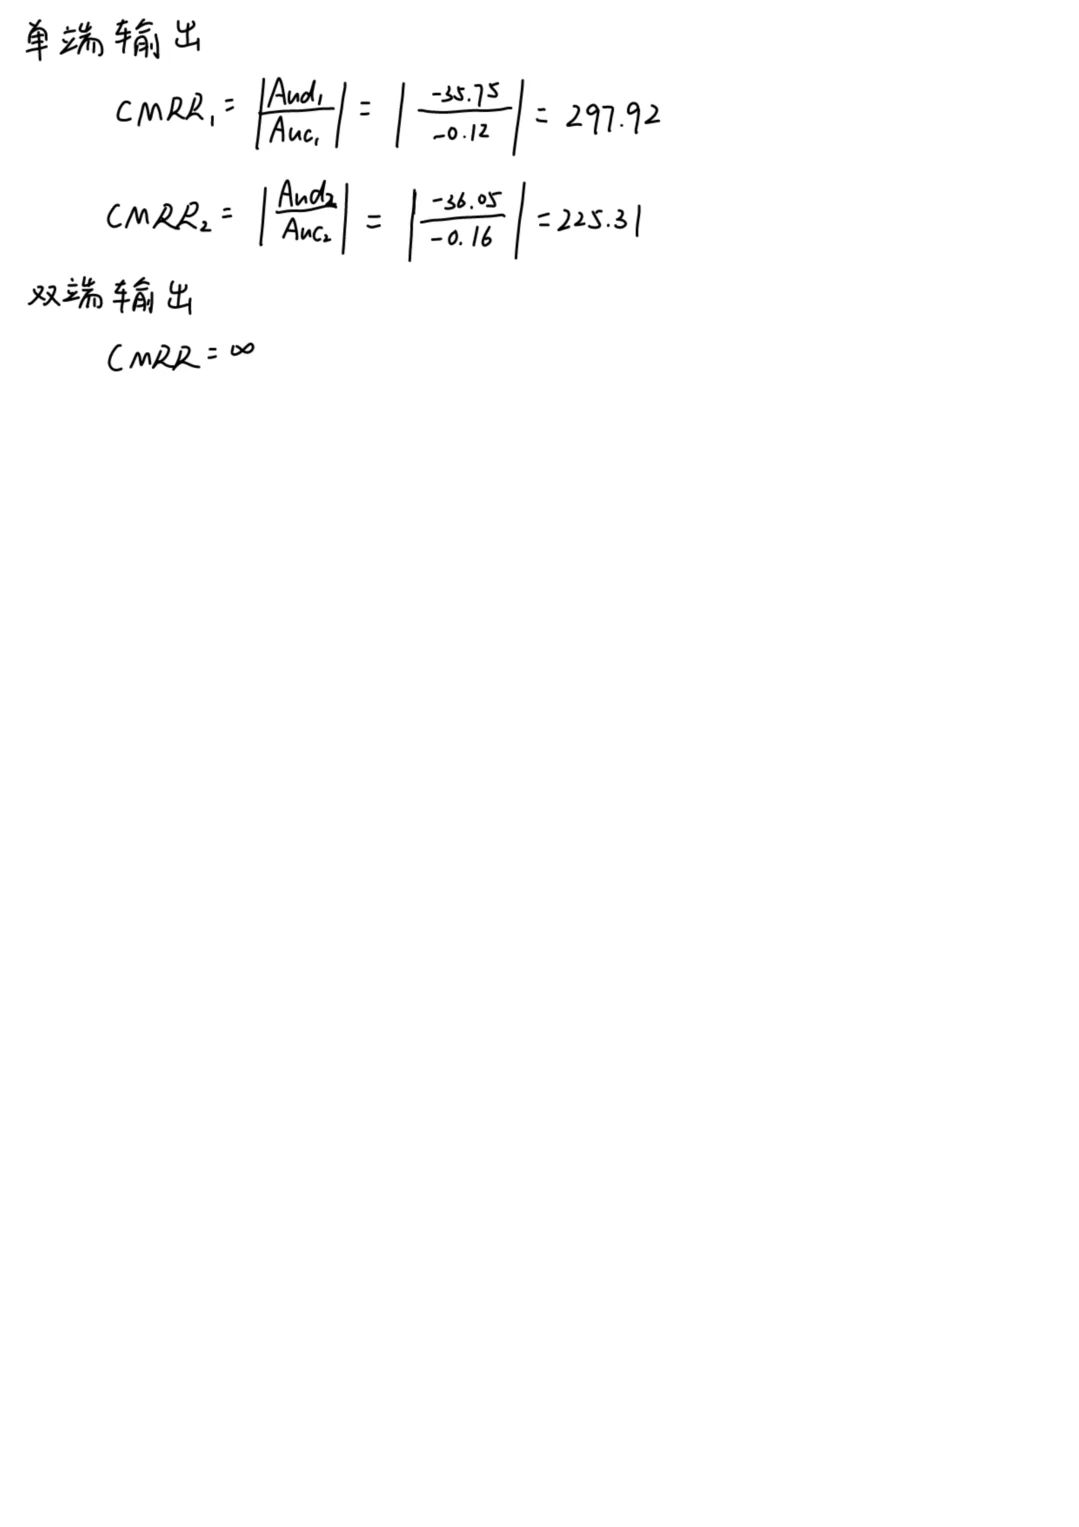 单端输出
CMRR₁ = |Aud₁/Auc₁| = |-35.75/-0.12| = 297.92
CMRR₂ = |Aud₂/Auc₂| = |-36.05/-0.16| = 225.31
双端输出
CMRR = ∞